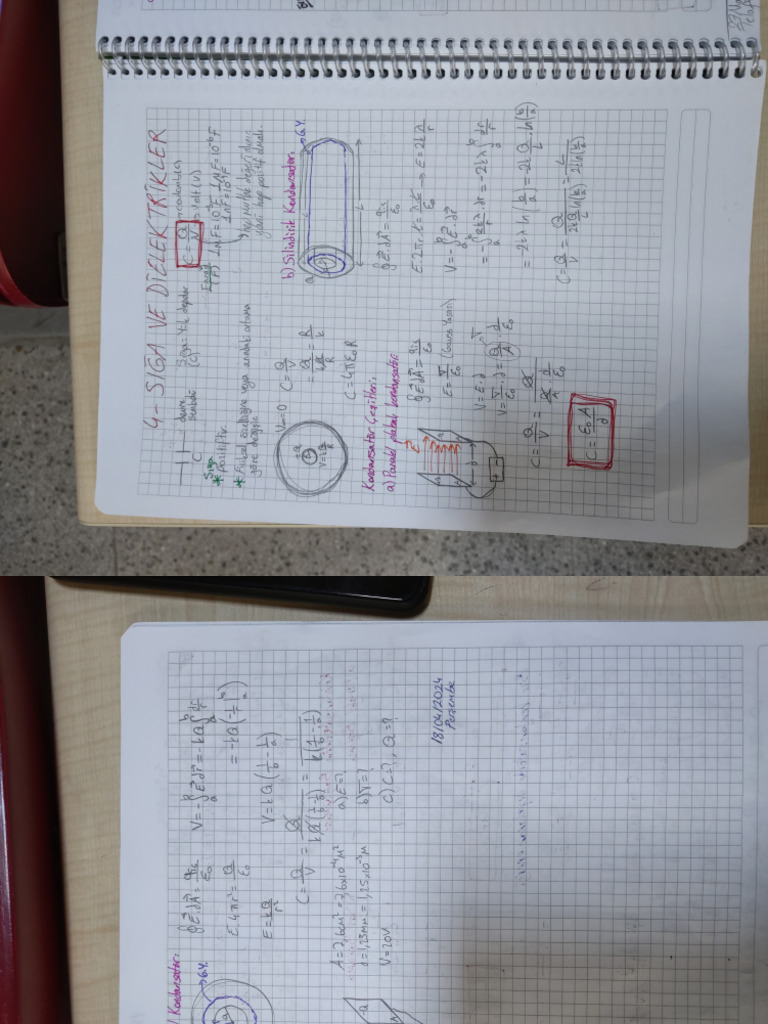 4- SIGA VE DİELEKTRİKLER
C
devre sembolü
Sığa = Yük depolar
(C)
C = Q/V
→ coulomb (C)
→ volt (V)
Farad (F)
1μF = 10⁻⁶F
1nF = 10⁻⁹F
* Sığa pozitiftir.
* Fiziksel özelliğine veya aradaki ortama göre değişir.
V∞ = 0
+Q
R
C = Q/V
= Q/(kQ/R) = R/k
C = 4πε₀R
Kondansatör Çeşitleri:
a) Paralel plakalı kondansatör:
E
d
∮E.dA = qiç/ε₀
E = σ/ε₀ (Gauss Yasası)
V = E.d
V = σ/ε₀ . d = Q/A . d/ε₀
C = Q/V = Q/(Q/A . d/ε₀)
C = ε₀A/d
b) Silindirik Kondansatör:
G.Y.
L
∮E.dA = qiç/ε₀
E.2πr.L = λ.L/ε₀ → E = 2kλ/r
V = -∫E.dr
= -∫2kλ/r . dr = -2kλ∫dr/r
= -2kλ ln(b/a) = -2k Q/L . ln(b/a)
C = Q/V = Q/(2kQ/L ln(b/a)) = L/(2k ln(b/a))
Kondansatör:
G.Y.
∮E.dA = qiç/ε₀
E.4πr² = Q/ε₀
E = kQ/r²
V = -∫E.dr = -kQ∫dr/r²
= -kQ(-1/r|
V = kQ(1/b - 1/a)
C = Q/V = Q/(kQ(1/b - 1/a)) = 1/(k(1/b - 1/a))
A = 7,6cm² = 7,6x10⁻⁴m²
d = 1,25mm = 1,25x10⁻³m
V = 20V
a) E = ?
b) σ = ?
c) C = ?, Q = ?
18/04/2024
Perşembe